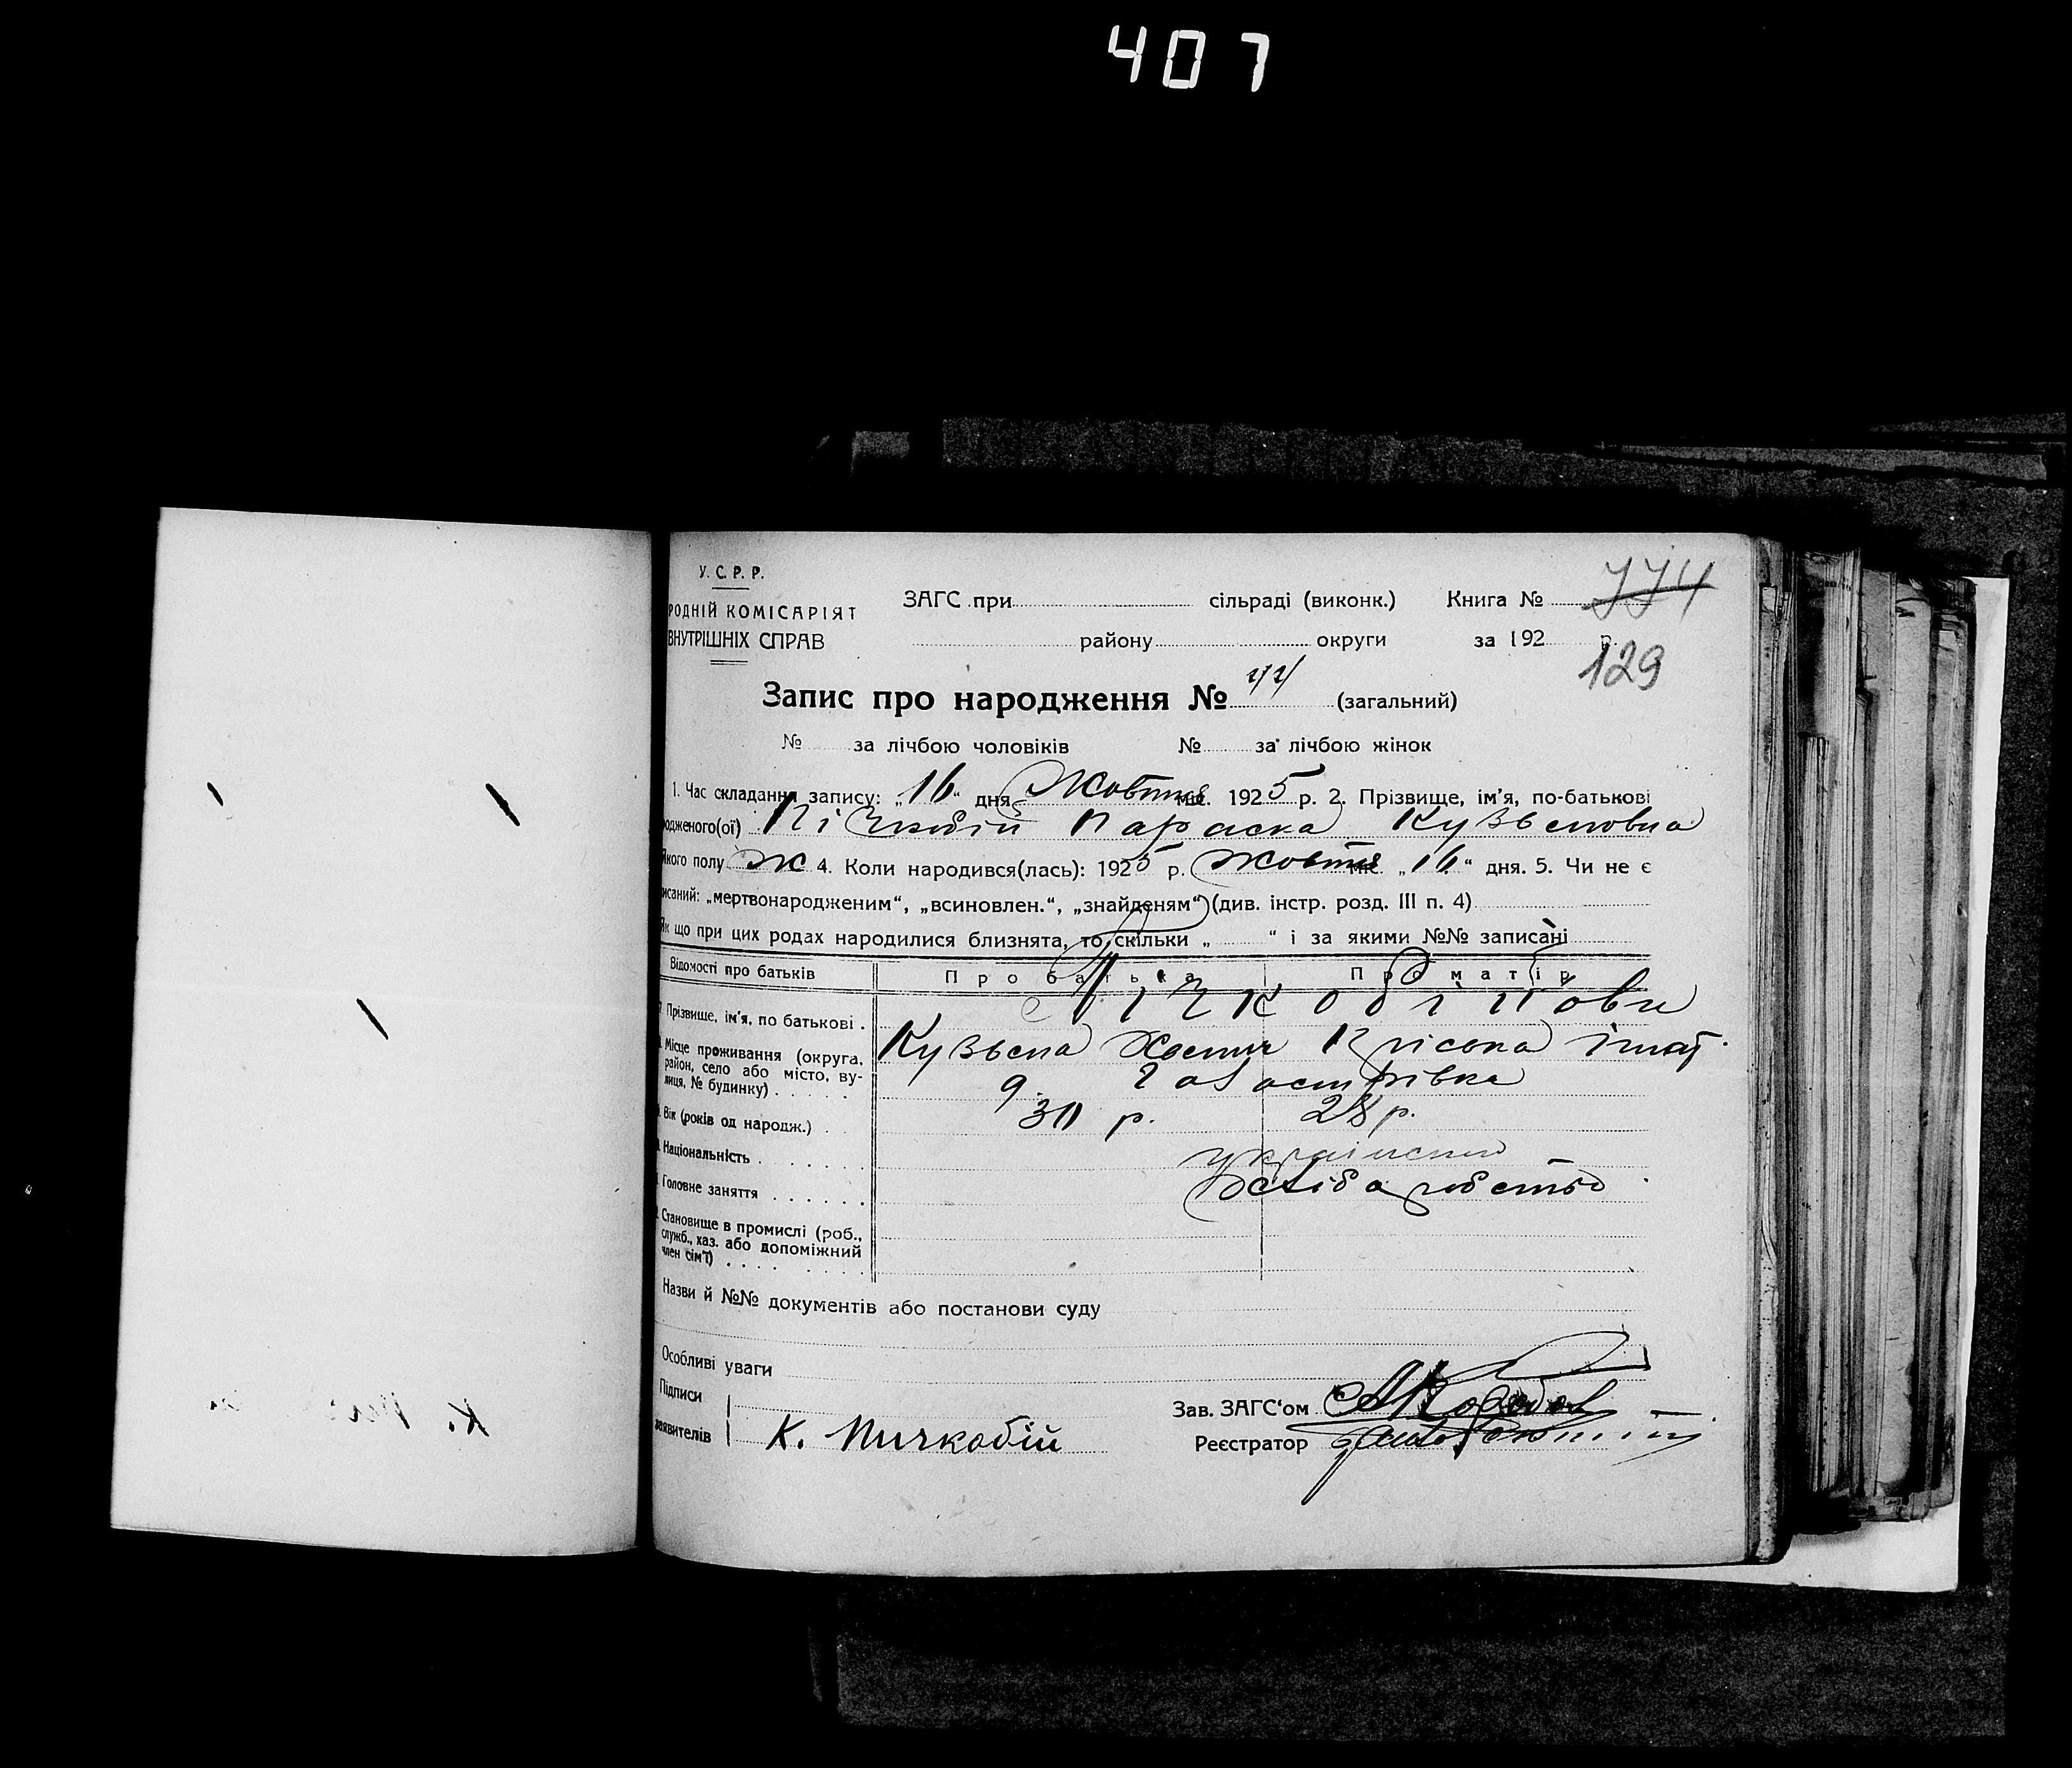 407
У. С. Р. Р.
РОДНІЙ КОМІСАРІЯТ
ВНУТРІШНІХ СПРАВ
ЗАГС при сільраді (виконк.) Книга № 774
району округи за 192 р.
129
Запис про народження № (загальний)
№ за лічбою чоловіків № за лічбою жінок
1. Час складання запису: „16“ дня Жовтня міс. 1925 р. 2. Прізвище, ім'я, по-батькові
одженого(ої) Пічкобій Параска Кузьмовна
Якого полу Ж 4. Коли народився(лась): 1925 р. Жовтня міс. „16“ дня. 5. Чи не є
писаний: „мертвонародженим“, „всиновлен.“, „знайденям“ (див. інстр. розд. III п. 4)
Як що при цих родах народилися близнята, то скільки „ “ і за якими №№ записані
Відомості про батьків Про батька Про матір
Прізвище, ім'я, по батькові Пічкобійови
Кузьма
Місце проживання (округа, район, село або місто, ву-
лиця, № будинку)
Вік (років од народж.) 30 р. 28 р.
Національність українськ
Головне заняття хліборобство
Становище в промислі (роб.,
служб., хаз. або допоміжний
член сім'ї)
Назви й №№ документів або постанови суду
Особливі уваги
Підписи
заявителів К. Пичкобій
Зав. ЗАГС'ом
Реєстратор